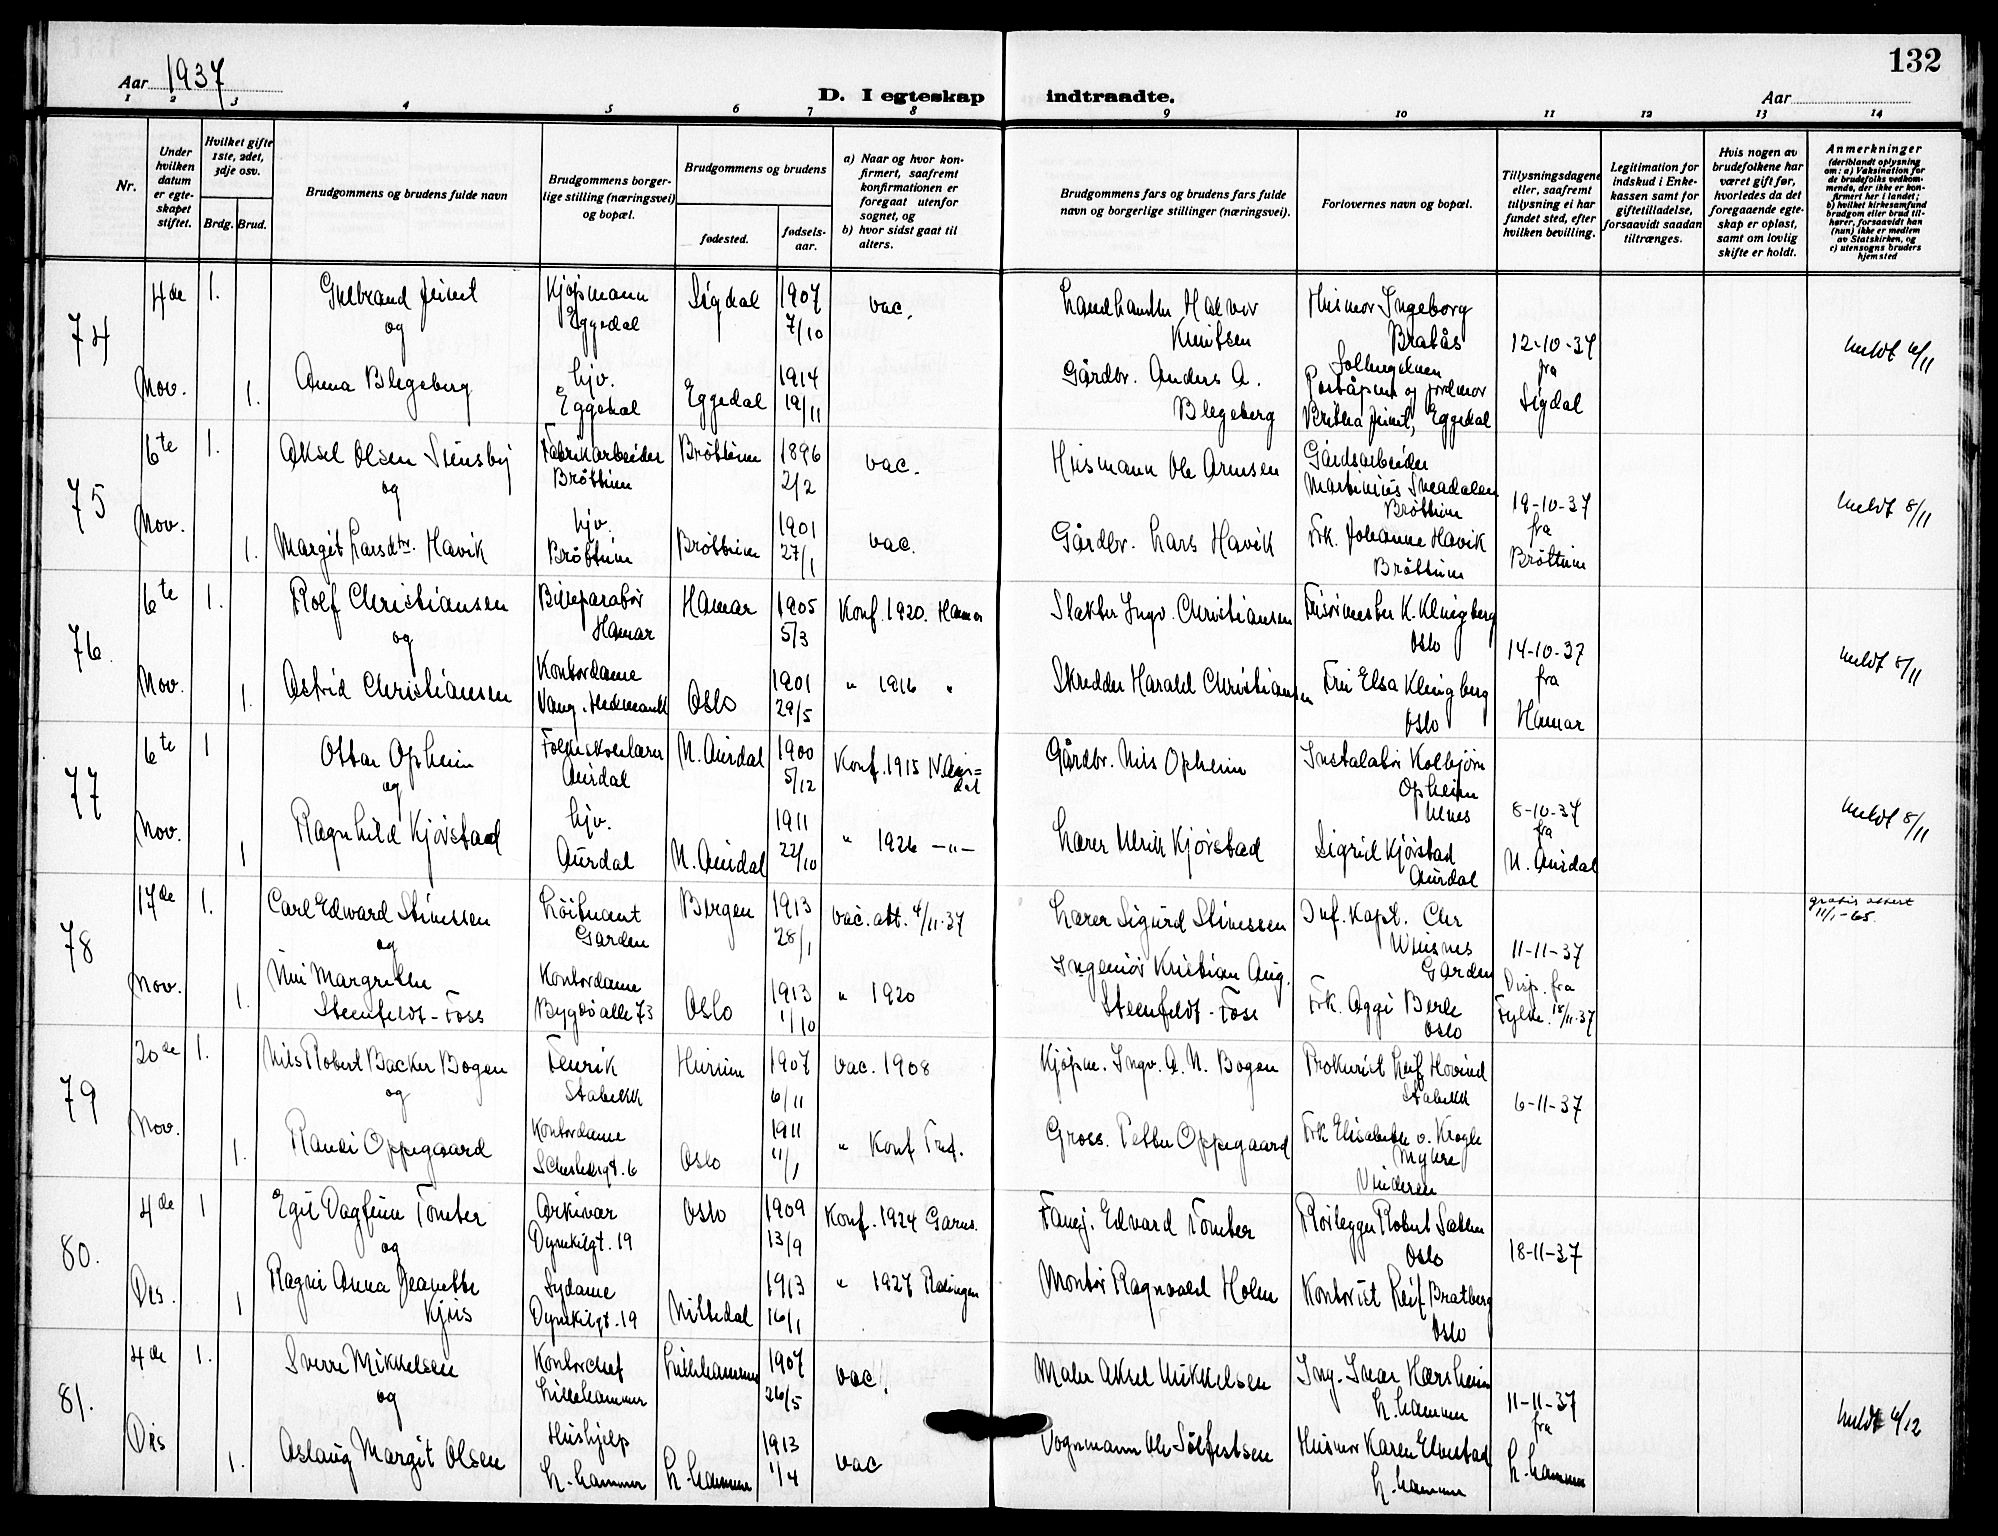 132
Aar 1937
D. I egteskap indtraadte.
Aar
1 2 3 4 5 6 7 8 9 10 11 12 13 14
Nr.
Under hvilken datum er egteskapet stiftet.
Hvilket gifte 1ste, 2det, 3dje osv.
Brdg. Brud.
Brudgommens og brudens fulde navn
Brudgommens borgerlige stilling (næringsvei) og bopæl.
Brudgommens og brudens
fødested.
fødselsaar.
a) Naar og hvor konfirmert, saafremt konfirmationen er foregaat utenfor sognet, og
b) hvor sidst gaat til alters.
Brudgommens fars og brudens fars fulde navn og borgerlige stillinger (næringsvei).
Forlovernes navn og bopæl.
Tillysningsdagene eller, saafremt tillysning ei har fundet sted, efter hvilken bevilling.
Legitimation for indskud i Enkekassen samt for giftetilladelse, forsaavidt saadan tiltrænges.
Hvis nogen av brudefolkene har været gift før, hvorledes da det foregaaende egteskap er opløst, samt om lovlig skifte er holdt.
Anmerkninger
(deriblandt oplysning om: a) Vaksination for de brudefolks vedkommende, der ikke er konfirmert her i landet, b) hvilket kirkesamfund brudgom eller brud tilhører, forsaavidt han (hun) ikke er medlem av Statskirken, og c) utensogns bruders hjemsted
74 4de Nov. 1. 1.
Gulbrand
og
Anna Blegeberg
Kjøpmann
Eggedal
hjv.
Eggedal
Sigdal 1907 7/10
Eggedal 1914 19/11
vac.
Landhandler Halvor
Knutsen
Gårdbr. Anders A.
Blegeberg
Husmor Ingeborg
Bratås
og jordmor
Eggedal
12-10-37
fra
Sigdal
meldt 6/11
75 6te Nov. 1. 1.
Aksel Olsen Stensby
og
Margit Larsdtr. Havik
Fabrikarbeider
Brøttum
hjv.
Brøttum
Brøttum 1896 2/2
Brøttum 1901 27/1
vac.
vac.
Husmann Ole Arnesen
Gårdbr. Lars Havik
Gårdsarbeider
Martinius
Brøttum
Frk. Johanne Havik
Brøttum
19-10-37
fra
Brøttum
meldt 8/11
76. 6te Nov. 1. 1.
Rolf Christiansen
og
Astrid Christiansen
Bilreparatør
Hamar
Kontordame
Vang. Hedmark
Hamar 1905 5/3
Oslo 1901 29/5
Konf. 1920. Hamar
" 1916 "
Slakter Ingv. Christiansen
Skredder Harald Christiansen
Frisørmester K. Klingberg
Oslo
Fru Elsa Klingberg
Oslo
14-10-37
fra
Hamar
meldt 8/11
77 6te Nov. 1 1
Ottar Opheim
og
Ragnhild Kjørstad
Folkeskolelærer
Aurdal
hjv.
Aurdal
N. Aurdal 1900 5/12
N. Aurdal 1911 22/10
Konf. 1915 N. Aur=
dal
" 1926 -"-
Gårdbr. Nils Opheim
Lærer Ulrik Kjørstad
Instalatør Kolbjørn
Opheim
Ulnes
Sigrid Kjørstad
Aurdal
8-10-37
fra
N. Aurdal
meldt 8/11
78 17de Nov. 1. 1.
Carl Edward Stinessen
og
Margrethe
Steenfeldt-Foss
Løitnant
Garden
Kontordame
Bygdø alle 73
Bergen 1913 28/1
Oslo 1913 1/10
vac. att. 4/11-37
" 1920
Lærer Sigurd Stinessen
Ingeniør Kristian Aug.
Steenfeldt-Foss
Inf. Kapt. Chr
Wiisnes
Garden
Frk. Aggi Berle
Oslo
11-11-37
Disp. fra
Fylke. 18/11-37
gratis attest
11/1-65.
79 20de Nov. 1. 1.
Nils Robert Backer Bogen
og
Randi Oppegaard
Fenrik
Stabekk
Kontordame
Hurum 1907 6/11
Oslo 1911 11/1
vac. 1908
" Konf Tref.
Kjøpm. Ingv. A. N. Bogen
Gross. Petter Oppegaard
Prokurist Leif Hovind
Stabekk
Frk Elisabeth v. Krogh
Myhre
Vinderen
6-11-37
80. 4de Des. 1 1
Egil Dagfinn Tomter
og
Ragni Anna Jeanette
Kjus
Arkivar
Dynekilgt. 19
Sydame
Dynekilgt. 19
Oslo 1909 13/9
Nittedal 1913 16/1
Konf. 1924 Garns.
" 1927 Rælingen
Fanej. Edvard Tomter
Montør Ragnvald Holm
Rørlegger Robert Sæther
Oslo
Kontorist Leif Bratberg
Oslo
18-11-37
81. 4de Des 1. 1.
Sverre Mikkelsen
og
Aslaug Margit Olsen
Kontorchef
Lillehammer
Hushjelp
L. hammer
Lillehammer 1907 26/5
L. hammer 1913 1/4
vac.
vac
Maler Aksel Mikkelsen
Vognmann Ole Sølfestsen
Ing. Ivar Hærsheim
L. hammer
Husmor Karen Elvestad
L. hammer
11-11-37
fra
L. hammer
meldt 6/12